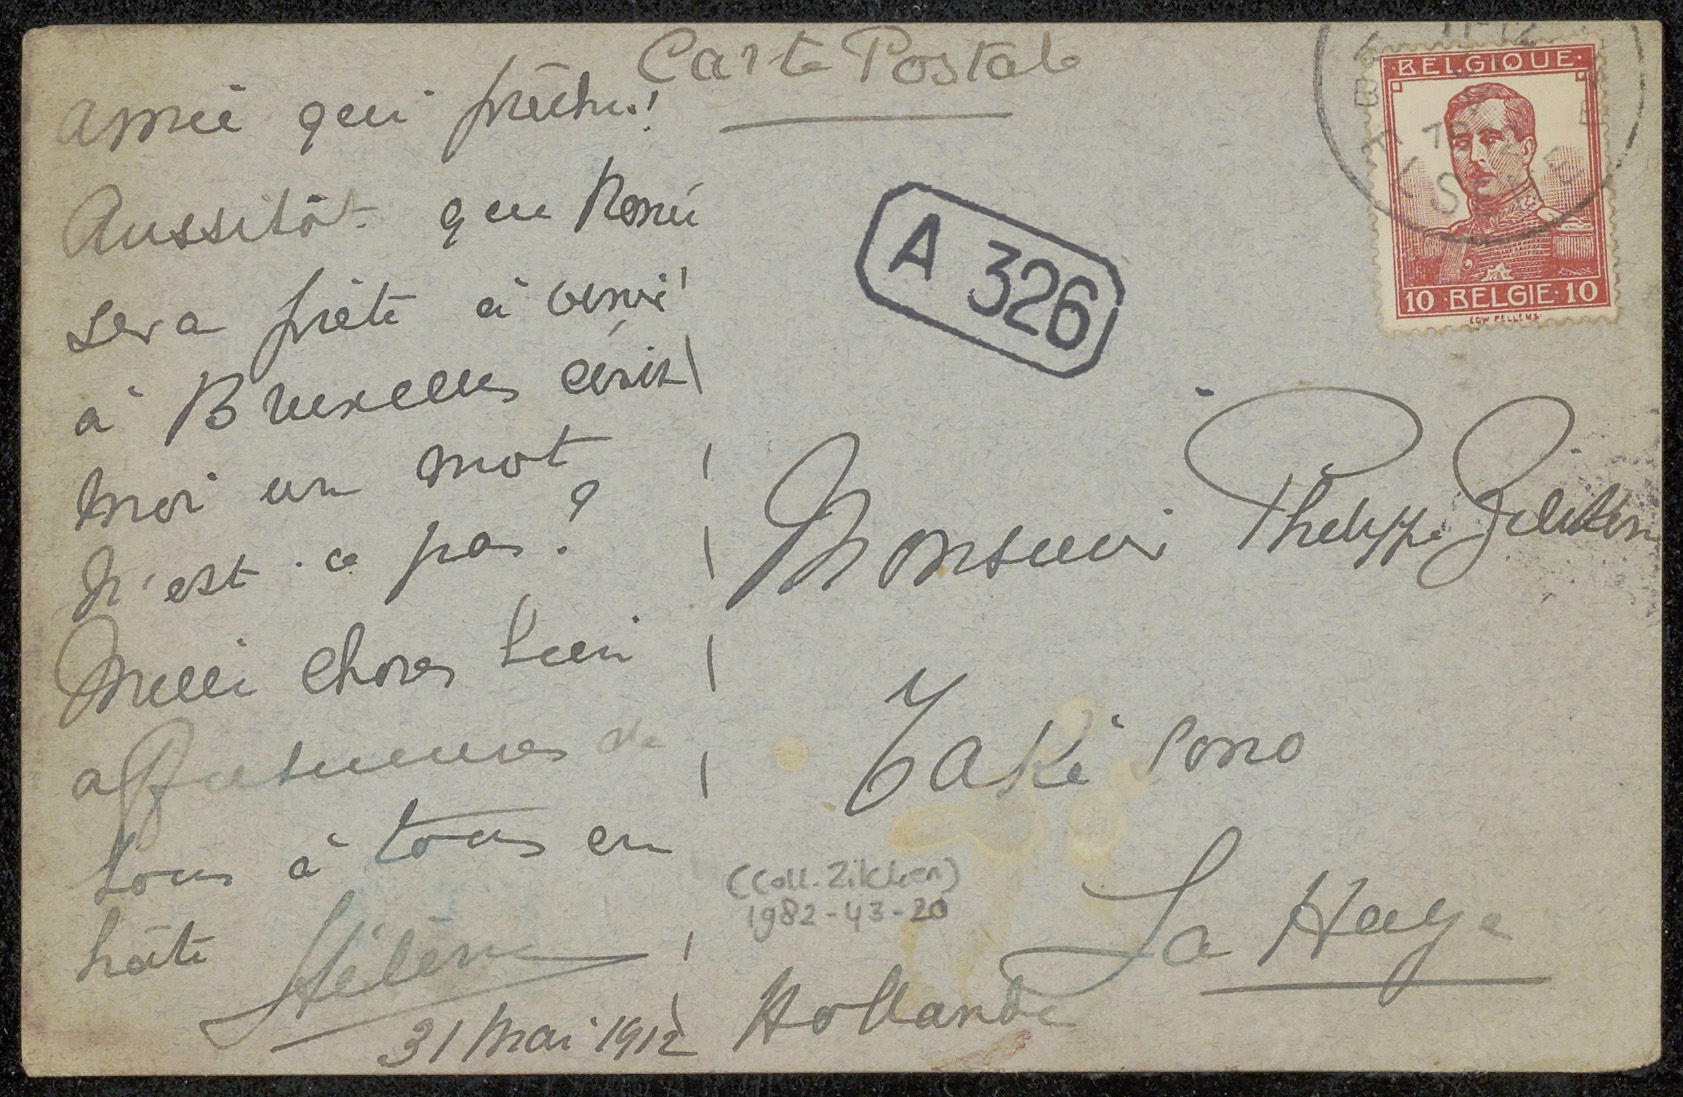 Carte Postale
amie qui prêche!
Aussitôt que Renée
sera prête à venir
à Bruxelles écris
moi un mot
n'est-ce pas?
Mille choses bien
affectueuses de
tous à tous en
hâte Hélène
31 Mai 1912
BELGIQUE
10 BELGIE 10
A 326
Monsieur Philippe Zilcken
Také Sono
La Haye
Hollande
(Coll. Zilcken)
1982-43-20